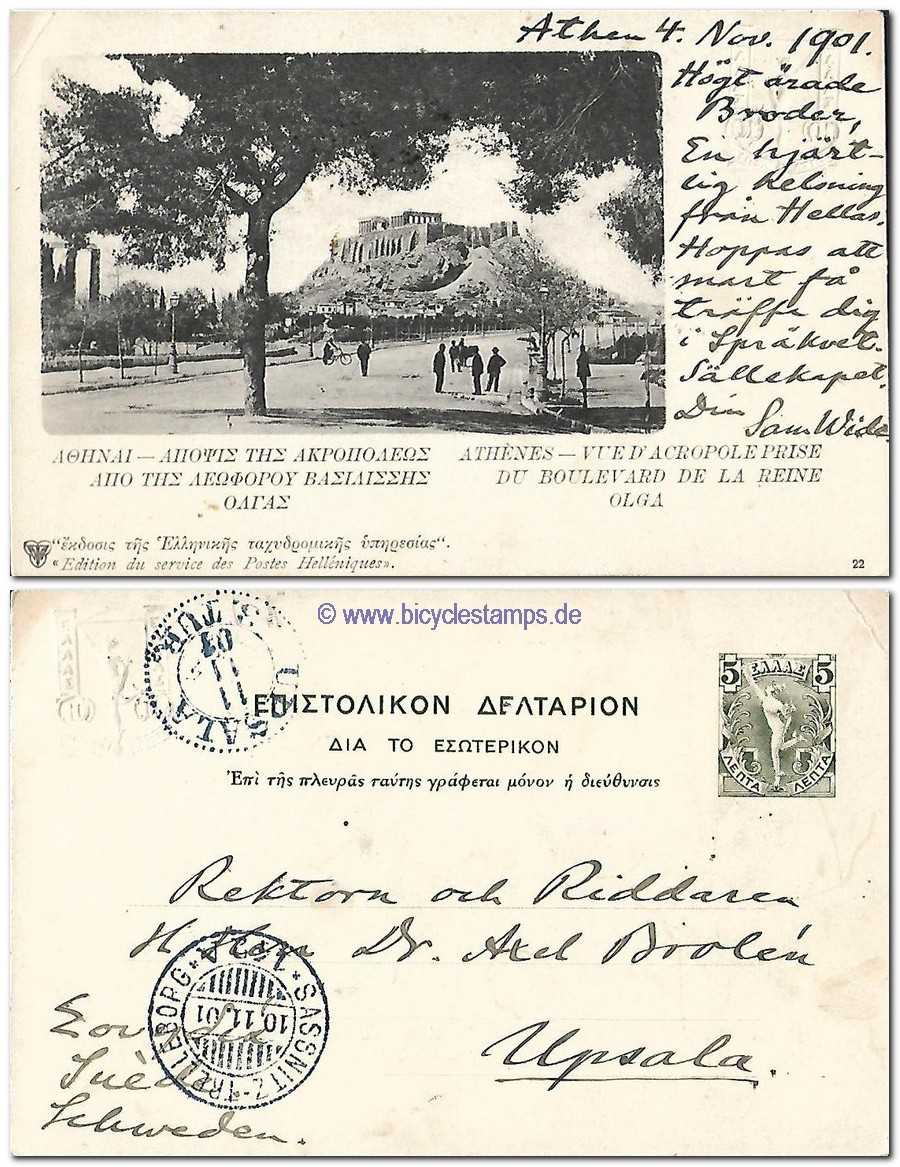 Athen 4. Nov. 1901.
Högt ärade
Broder,
En hjärt-
lig helsning
från Hellas.
Hoppas att
snart få
träffa dig
i Språkvet.
Sällskapet.
Din
Sam Wide
ΑΘΗΝΑΙ — ΑΠΟΨΙΣ ΤΗΣ ΑΚΡΟΠΟΛΕΩΣ
ΑΠΟ ΤΗΣ ΛΕΩΦΟΡΟΥ ΒΑΣΙΛΙΣΣΗΣ
ΟΛΓΑΣ
ATHÈNES — VUE D'ACROPOLE PRISE
DU BOULEVARD DE LA REINE
OLGA
"ἔκδοσις τῆς Ἑλληνικῆς ταχυδρομικῆς ὑπηρεσίας".
«Edition du service des Postes Helléniques».
22
© www.bicyclestamps.de
UPSALA
11 11
01
ΕΠΙΣΤΟΛΙΚΟΝ ΔΕΛΤΑΡΙΟΝ
ΔΙΑ ΤΟ ΕΣΩΤΕΡΙΚΟΝ
Ἐπὶ τῆς πλευρᾶς ταύτης γράφεται μόνον ἡ διεύθυνσις
5 ΕΛΛΑΣ 5
ΛΕΠΤΑ ΛΕΠΤΑ
Rektorn och Riddaren
H. Herr Dr. Axel
Upsala.
SASSNITZ-TRELLEBORG
10.11.01
Suède
Schweden.